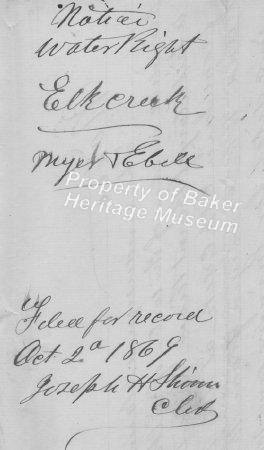 Notice
Water Right
Elk creek
Myer & Ebell
Property of Baker
Heritage Museum
Filed for record
Oct 2d 1869
Joseph H Shinn
Clerk